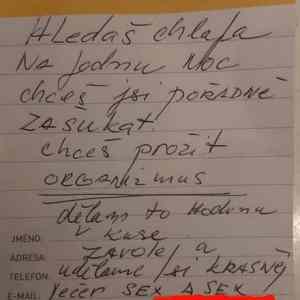 HLEDAŠ chlapa
NA jednu NOC
chceš jsi POŘÁDNĚ
ZASUKAT.
chceš prožít
ORGANIZMUS
dělám to Hodinu
JMÉNO: v kuse.
ADRESA: ZAVOLEJ a
TELEFON: uděláme jsi KRASNEJ
E-MAIL: večer SEX A SEX